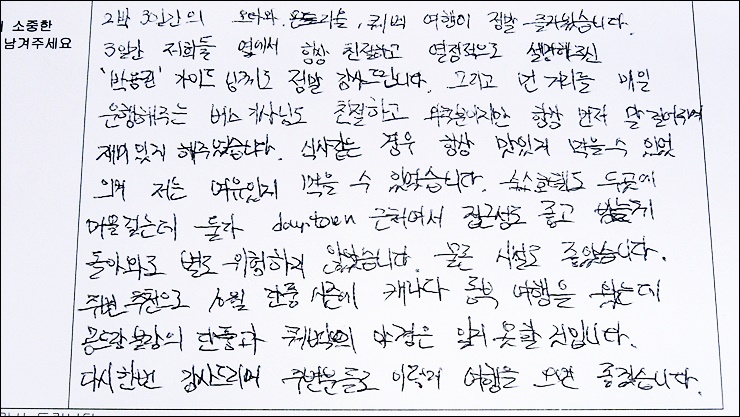 소중한
남겨주세요
2박 3일간의 오타와, 몬트리올, 퀘벡 여행이 정말 즐거웠습니다.
3일간 저희들 옆에서 항상 친절하고 열정적으로 설명해주신
가이드 님께도 정말 감사드립니다. 그리고 먼 거리를 매일
운행해주는 버스기사님도 친절하고 항상 먼저 말 걸어주며
재미있게 해주었습니다. 식사같은 경우 항상 맛있게 먹을 수 있었
으며 저는 여유있게 먹을 수 있었습니다. 숙소호텔도 두곳에
머물렀는데 둘다 downtown 근처여서 접근성도 좋고 밤늦게
돌아와도 별로 위험하지 않았습니다. 물론 시설도 좋았습니다.
주변 추천으로 10월 단풍 시즌에 캐나다 동부 여행을 왔는데
몽트랑블랑의 단풍과 퀘벡의 야경은 잊지 못할 것입니다.
다시한번 감사드리며 주변분들도 이렇게 여행을 오면 좋겠습니다.